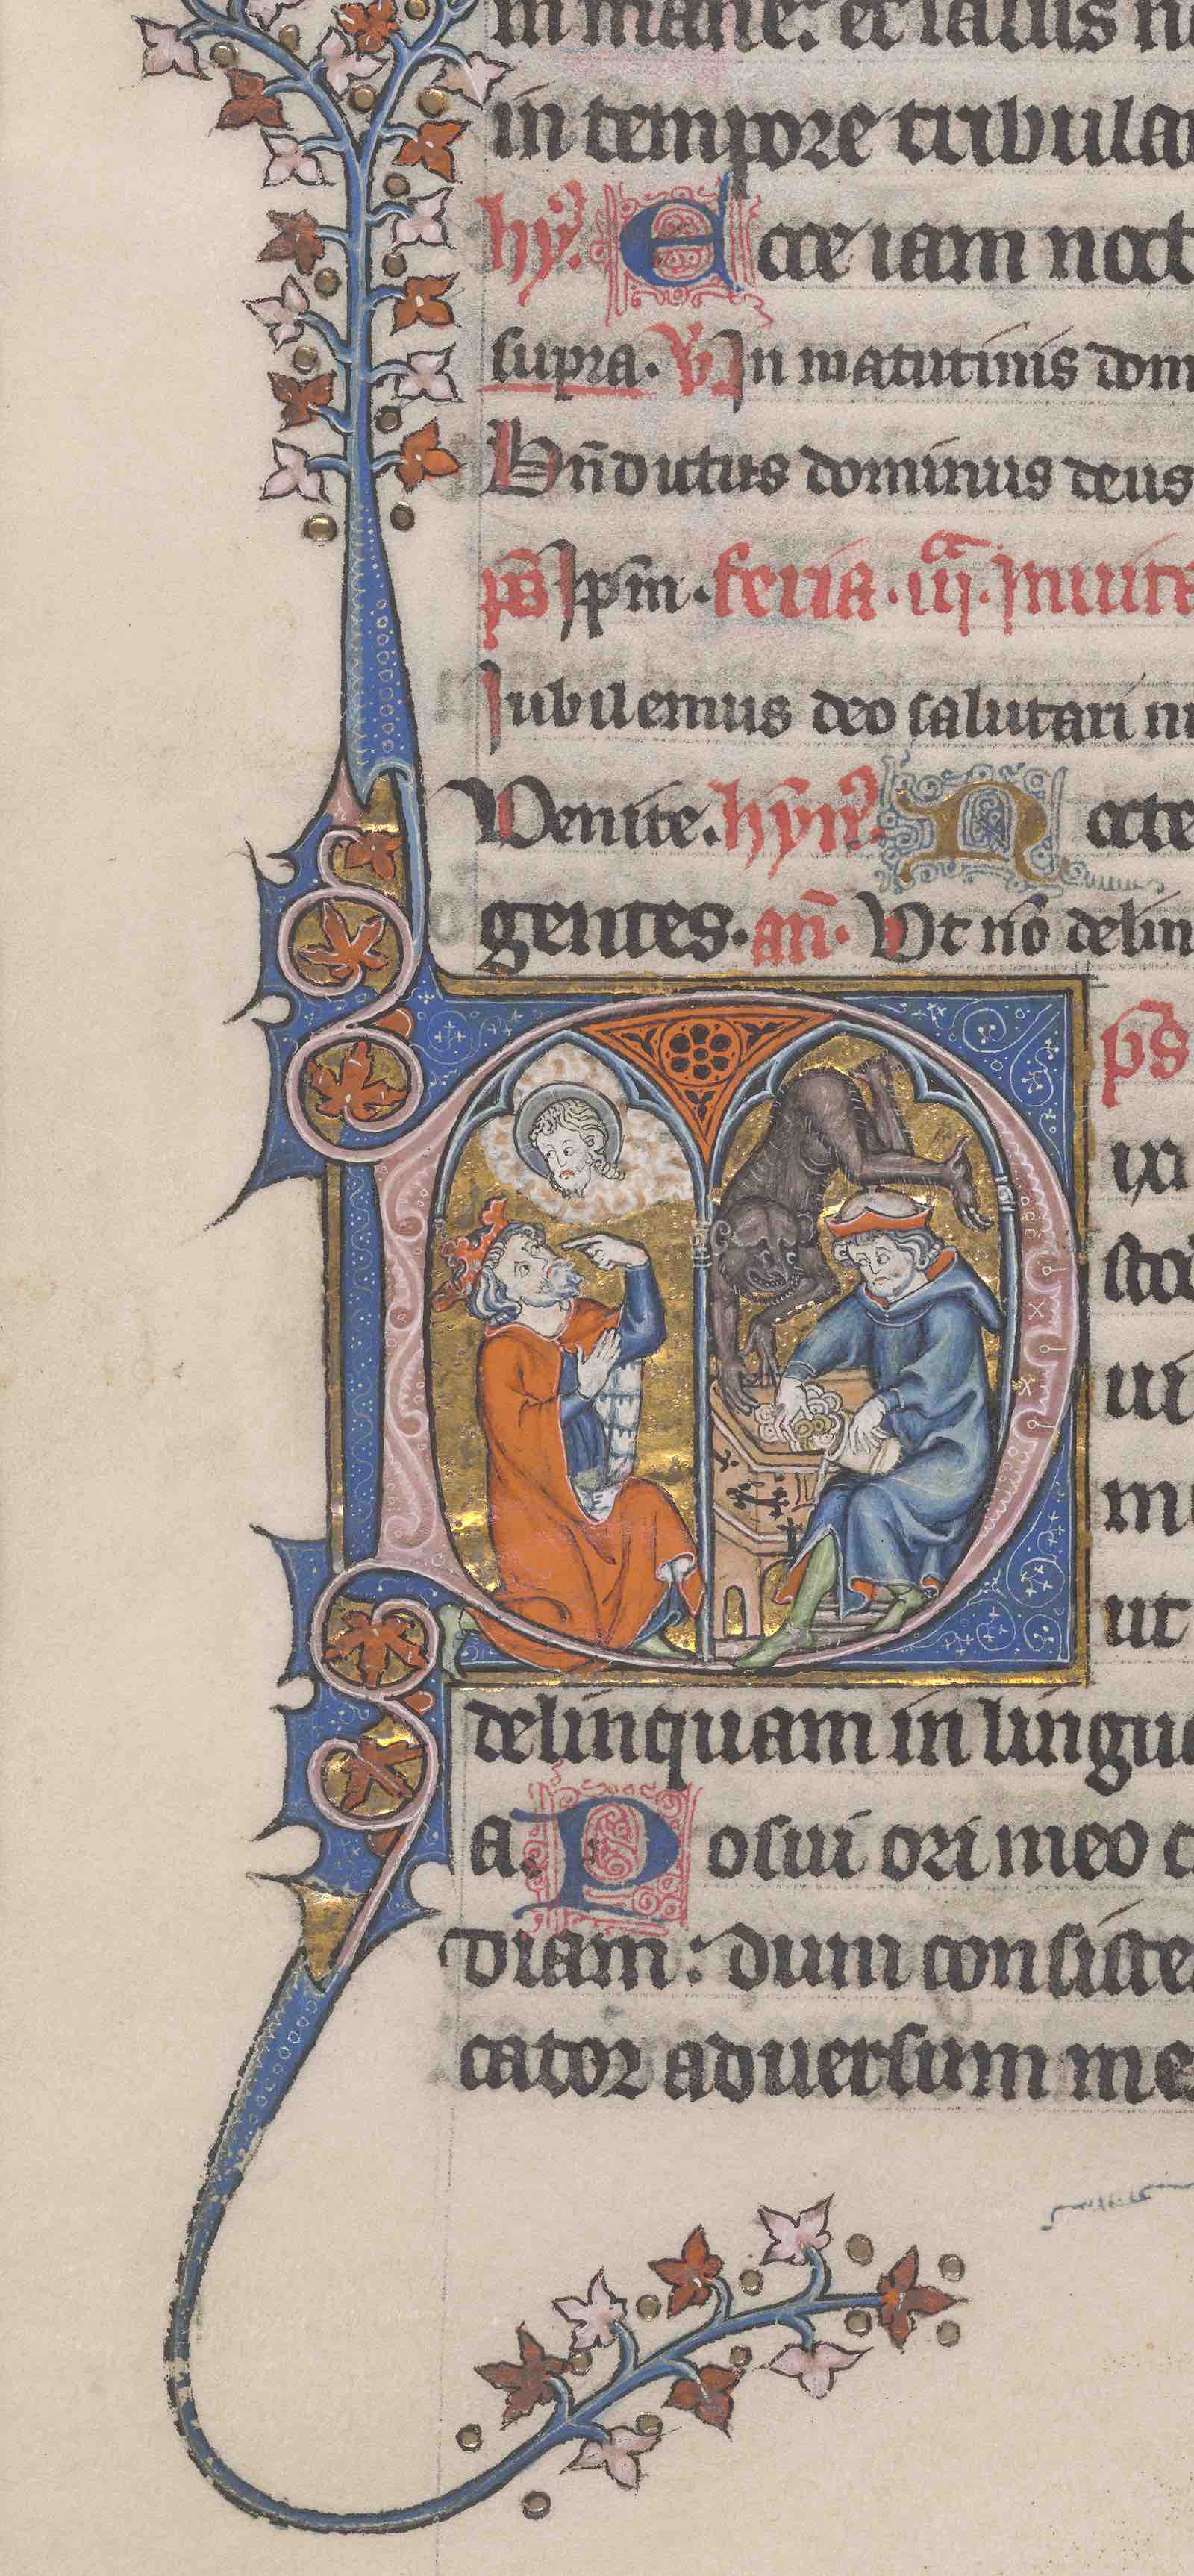 in mane: et saluus
in tempore tribula
hy. Ecce iam noct
supra. V In matutinis dom
Bn̄dictus dominus deus
ps Ip̄m. feria. iii.a Inuit
Iubilemus deo salutari
Venite. hȳn N octe
gentes. an̄. Vt nō delin
ps
D ixi
sto
ui
m
ut
delinquam in lingu
a. Posui ori meo c
diam: dum consiste
cator aduersum me